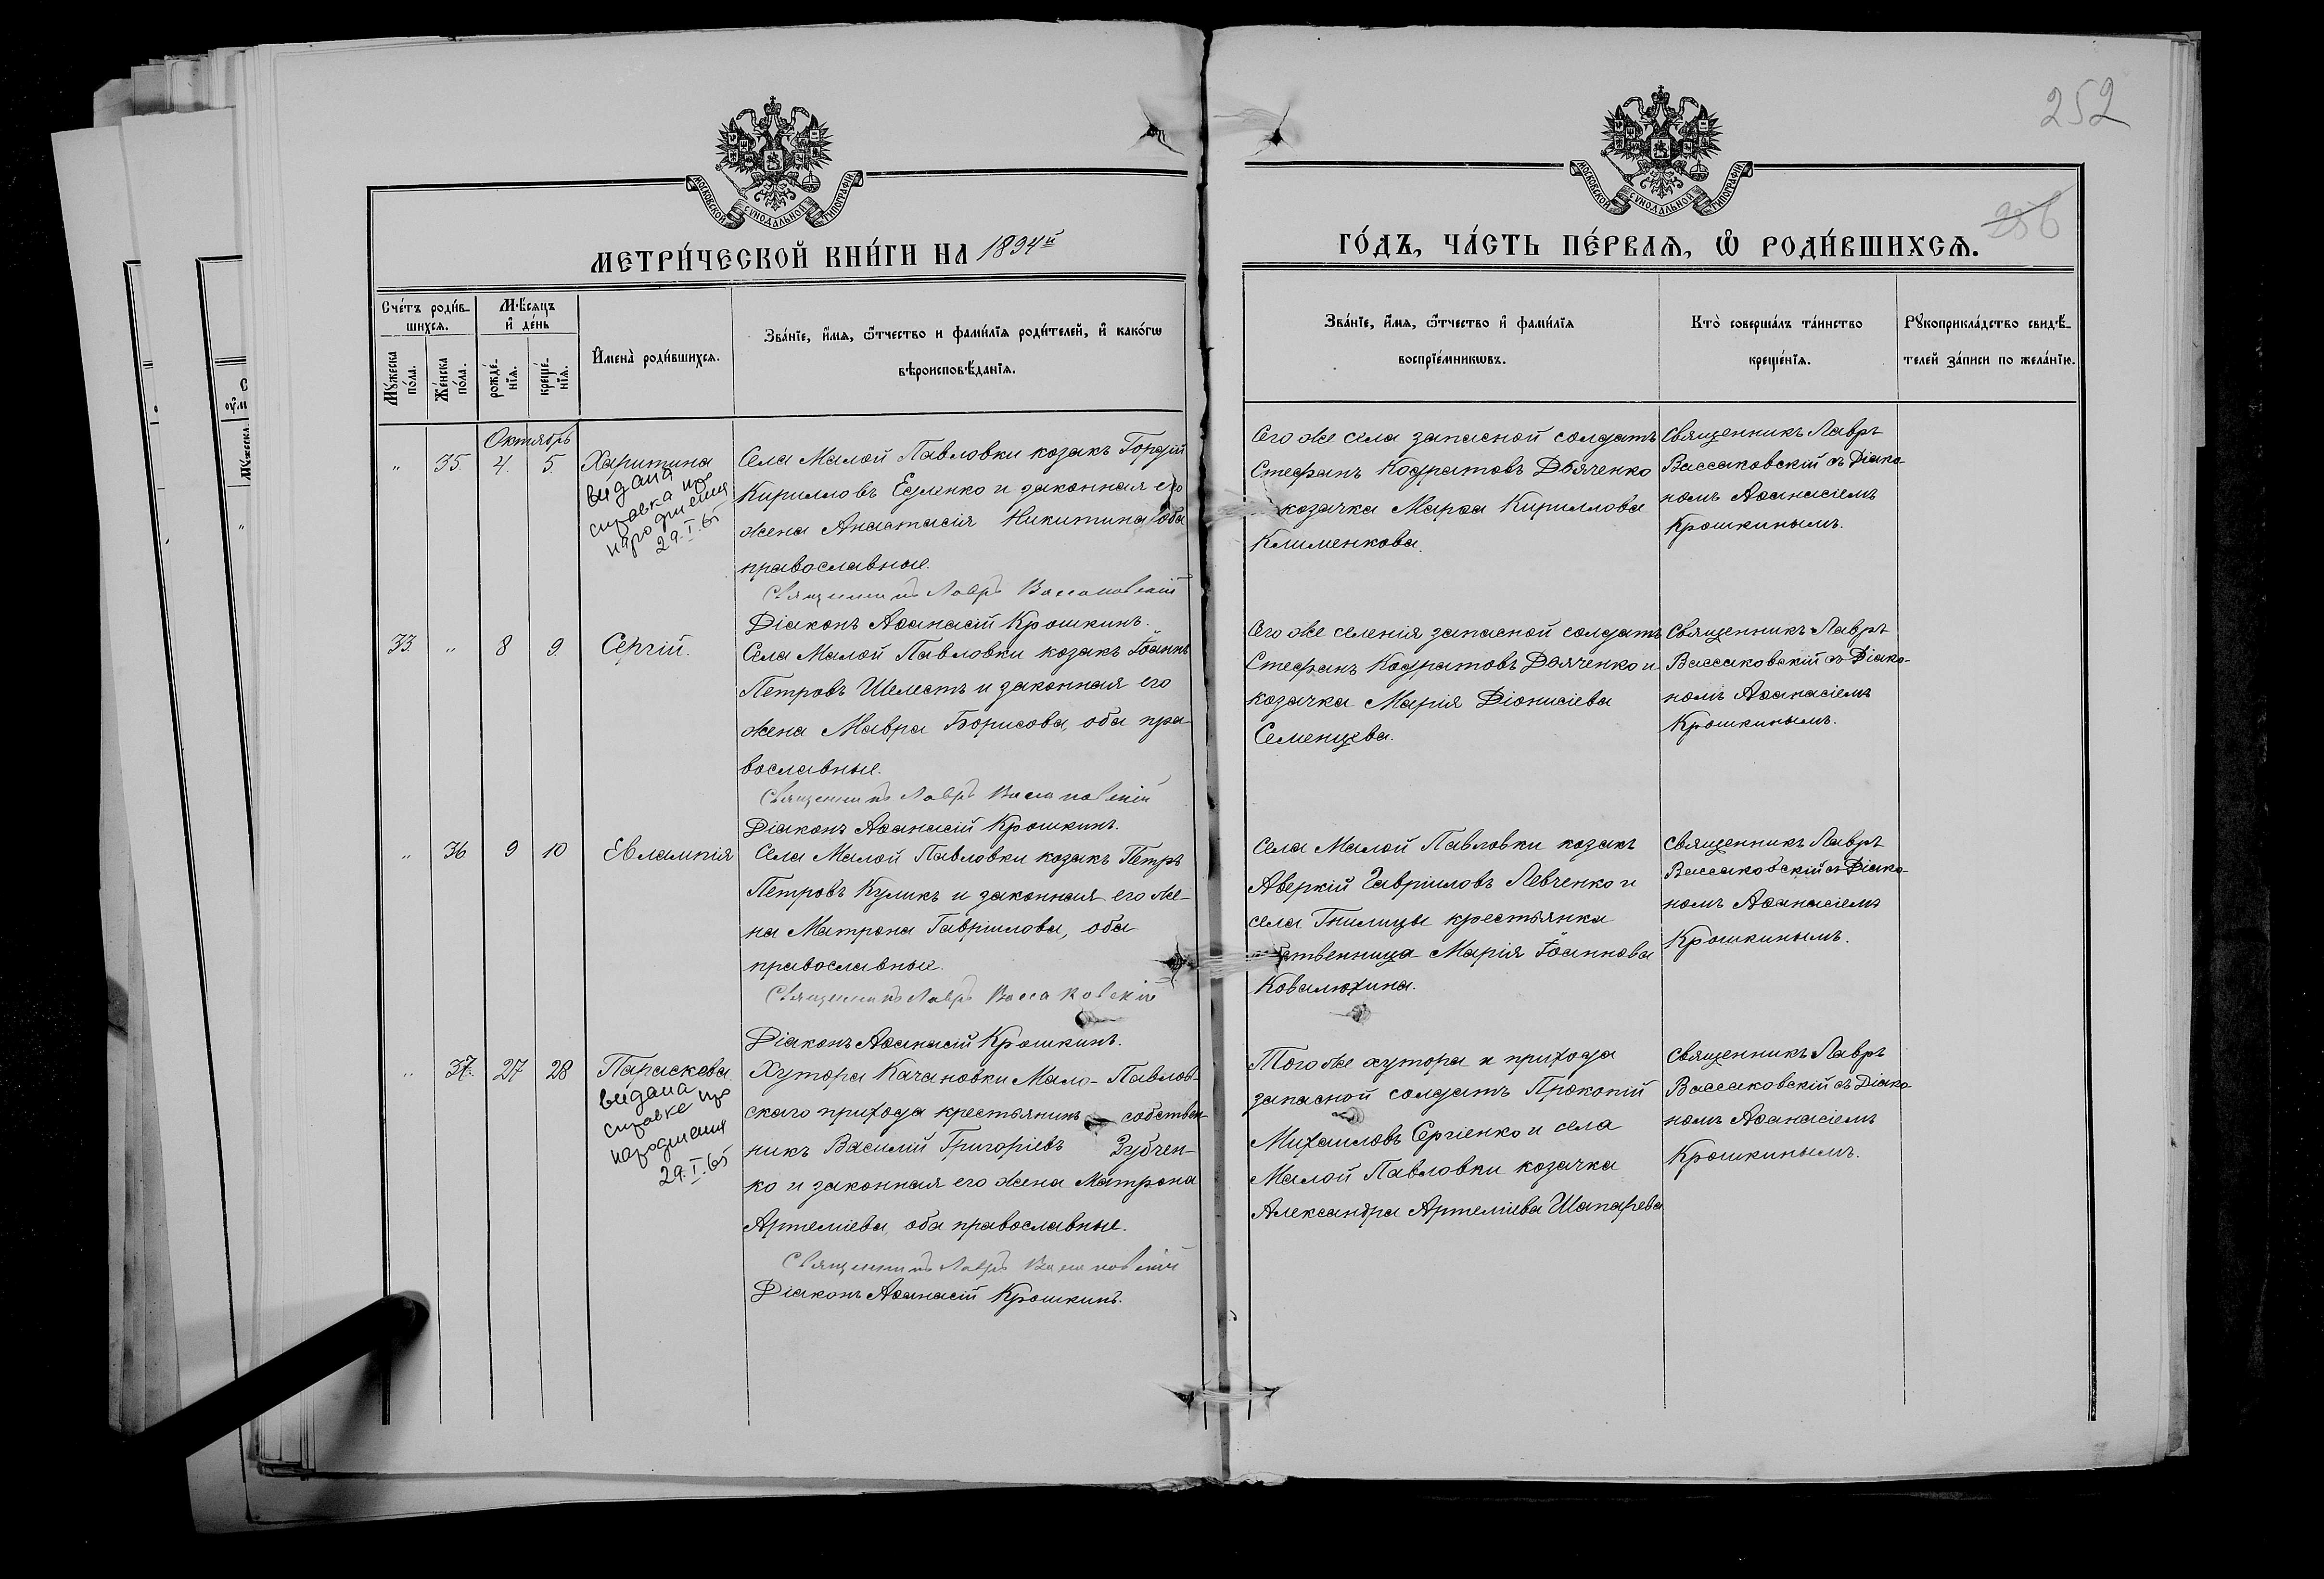 252
МОСКОВСКОЙ СѴНОДАЛЬНОЙ ТИПОГРАФІИ
МОСКОВСКОЙ СѴНОДАЛЬНОЙ ТИПОГРАФІИ
256
МЕТРИ́ЧЕСКОЙ КНИ́ГИ НА 1894й
ГО́ДЪ, ЧА́СТЬ ПЕ́РВАѦ, Ѡ҆ РОДИ́ВШИХСѦ.
Сче́тъ роди́в-
шихсѧ.
Мꙋ́жеска по́ла.
Же́нска по́ла.
Мѣ́сяцъ
и҆ де́нь
рожде́-
нїѧ.
креще́-
нїѧ.
И҆мена̀ роди́вшихсѧ.
Зва́нїе, и҆́мѧ, ѻ҆́тчество и фами́лїѧ роди́телей, и҆ како́гѡ
вѣроисповѣ́данїѧ.
Зва́нїе, и҆́мѧ, ѻ҆́тчество и҆ фами́лїѧ
воспрїе́мникѡвъ.
Кто̀ соверша́лъ та́инство
креще́нїѧ.
Рꙋкоприкла́дство свидѣ́-
телей за́писи по жела́нїю.
Октябрь
" 35. 4. 5. Харитина
видана
справка про
народження
29.I.65
Села Малой Павловки козакъ Гордій
Кирилловъ Едленко и законная его
жена Анастасія Никитина оба
православные.
Священникъ Лавръ Вассаковскій
Діаконъ Аѳанасій Крошкинъ.
Сего же села запасной солдатъ
Стефанъ Кодратовъ Дьяченко
козачка Марѳа Кириллова
Клименкова.
Священникъ Лавръ
Вассаковскій съ Діако-
номъ Аѳанасіемъ
Крошкинымъ.
33. " 8 9. Сергій.
Села Малой Павловки козакъ Іоаннъ
Петровъ Шелестъ и законная его
жена Мавра Борисова, оба пра-
вославные.
Священникъ Лавръ Вассаковскій
Діаконъ Аѳанасій Крошкинъ.
Сего же селенія запасной солдатъ
Стефанъ Кодратовъ Дояченко и
козачка Марія Діонисіева
Семенцева.
Священникъ Лавръ
Вассаковскій съ Діако-
номъ Аѳанасіемъ
Крошкинымъ.
" 36 9 10 Евлампія
Села Малой Павловки козакъ Петръ
Петровъ Куликъ и законная его же-
на Матрона Гавріилова, оба
православные.
Священникъ Лавръ Вассаковскій
Діаконъ Аѳанасій Крошкинъ.
Села Малой Павловки козакъ
Аверкій Гавріиловъ Левченко и
села Гнилицы крестьянка
ственница Марія Іоаннова
Ковалюхина.
Священникъ Лавръ
Вассаковскій съ Діако-
номъ Аѳанасіемъ
Крошкинымъ.
" 37. 27 28 Параскева
видана
справке про
народження
29.I.65
Хутора Качановки Мало-Павлов-
скаго прихода крестьянинъ собствен-
никъ Василій Григоріевъ Зубчен-
ко и законная его жена Матрона
Артеміева, оба православные.
Священникъ Лавръ Вассаковскій
Діаконъ Аѳанасій Крошкинъ.
Того же хутора и прихода
запасной солдатъ Прокопій
Михаиловъ Сергіенко и села
Малой Павловки козачка
Александра Артеміева Шапарева
Священникъ Лавръ
Вассаковскій съ Діако-
номъ Аѳанасіемъ
Крошкинымъ.